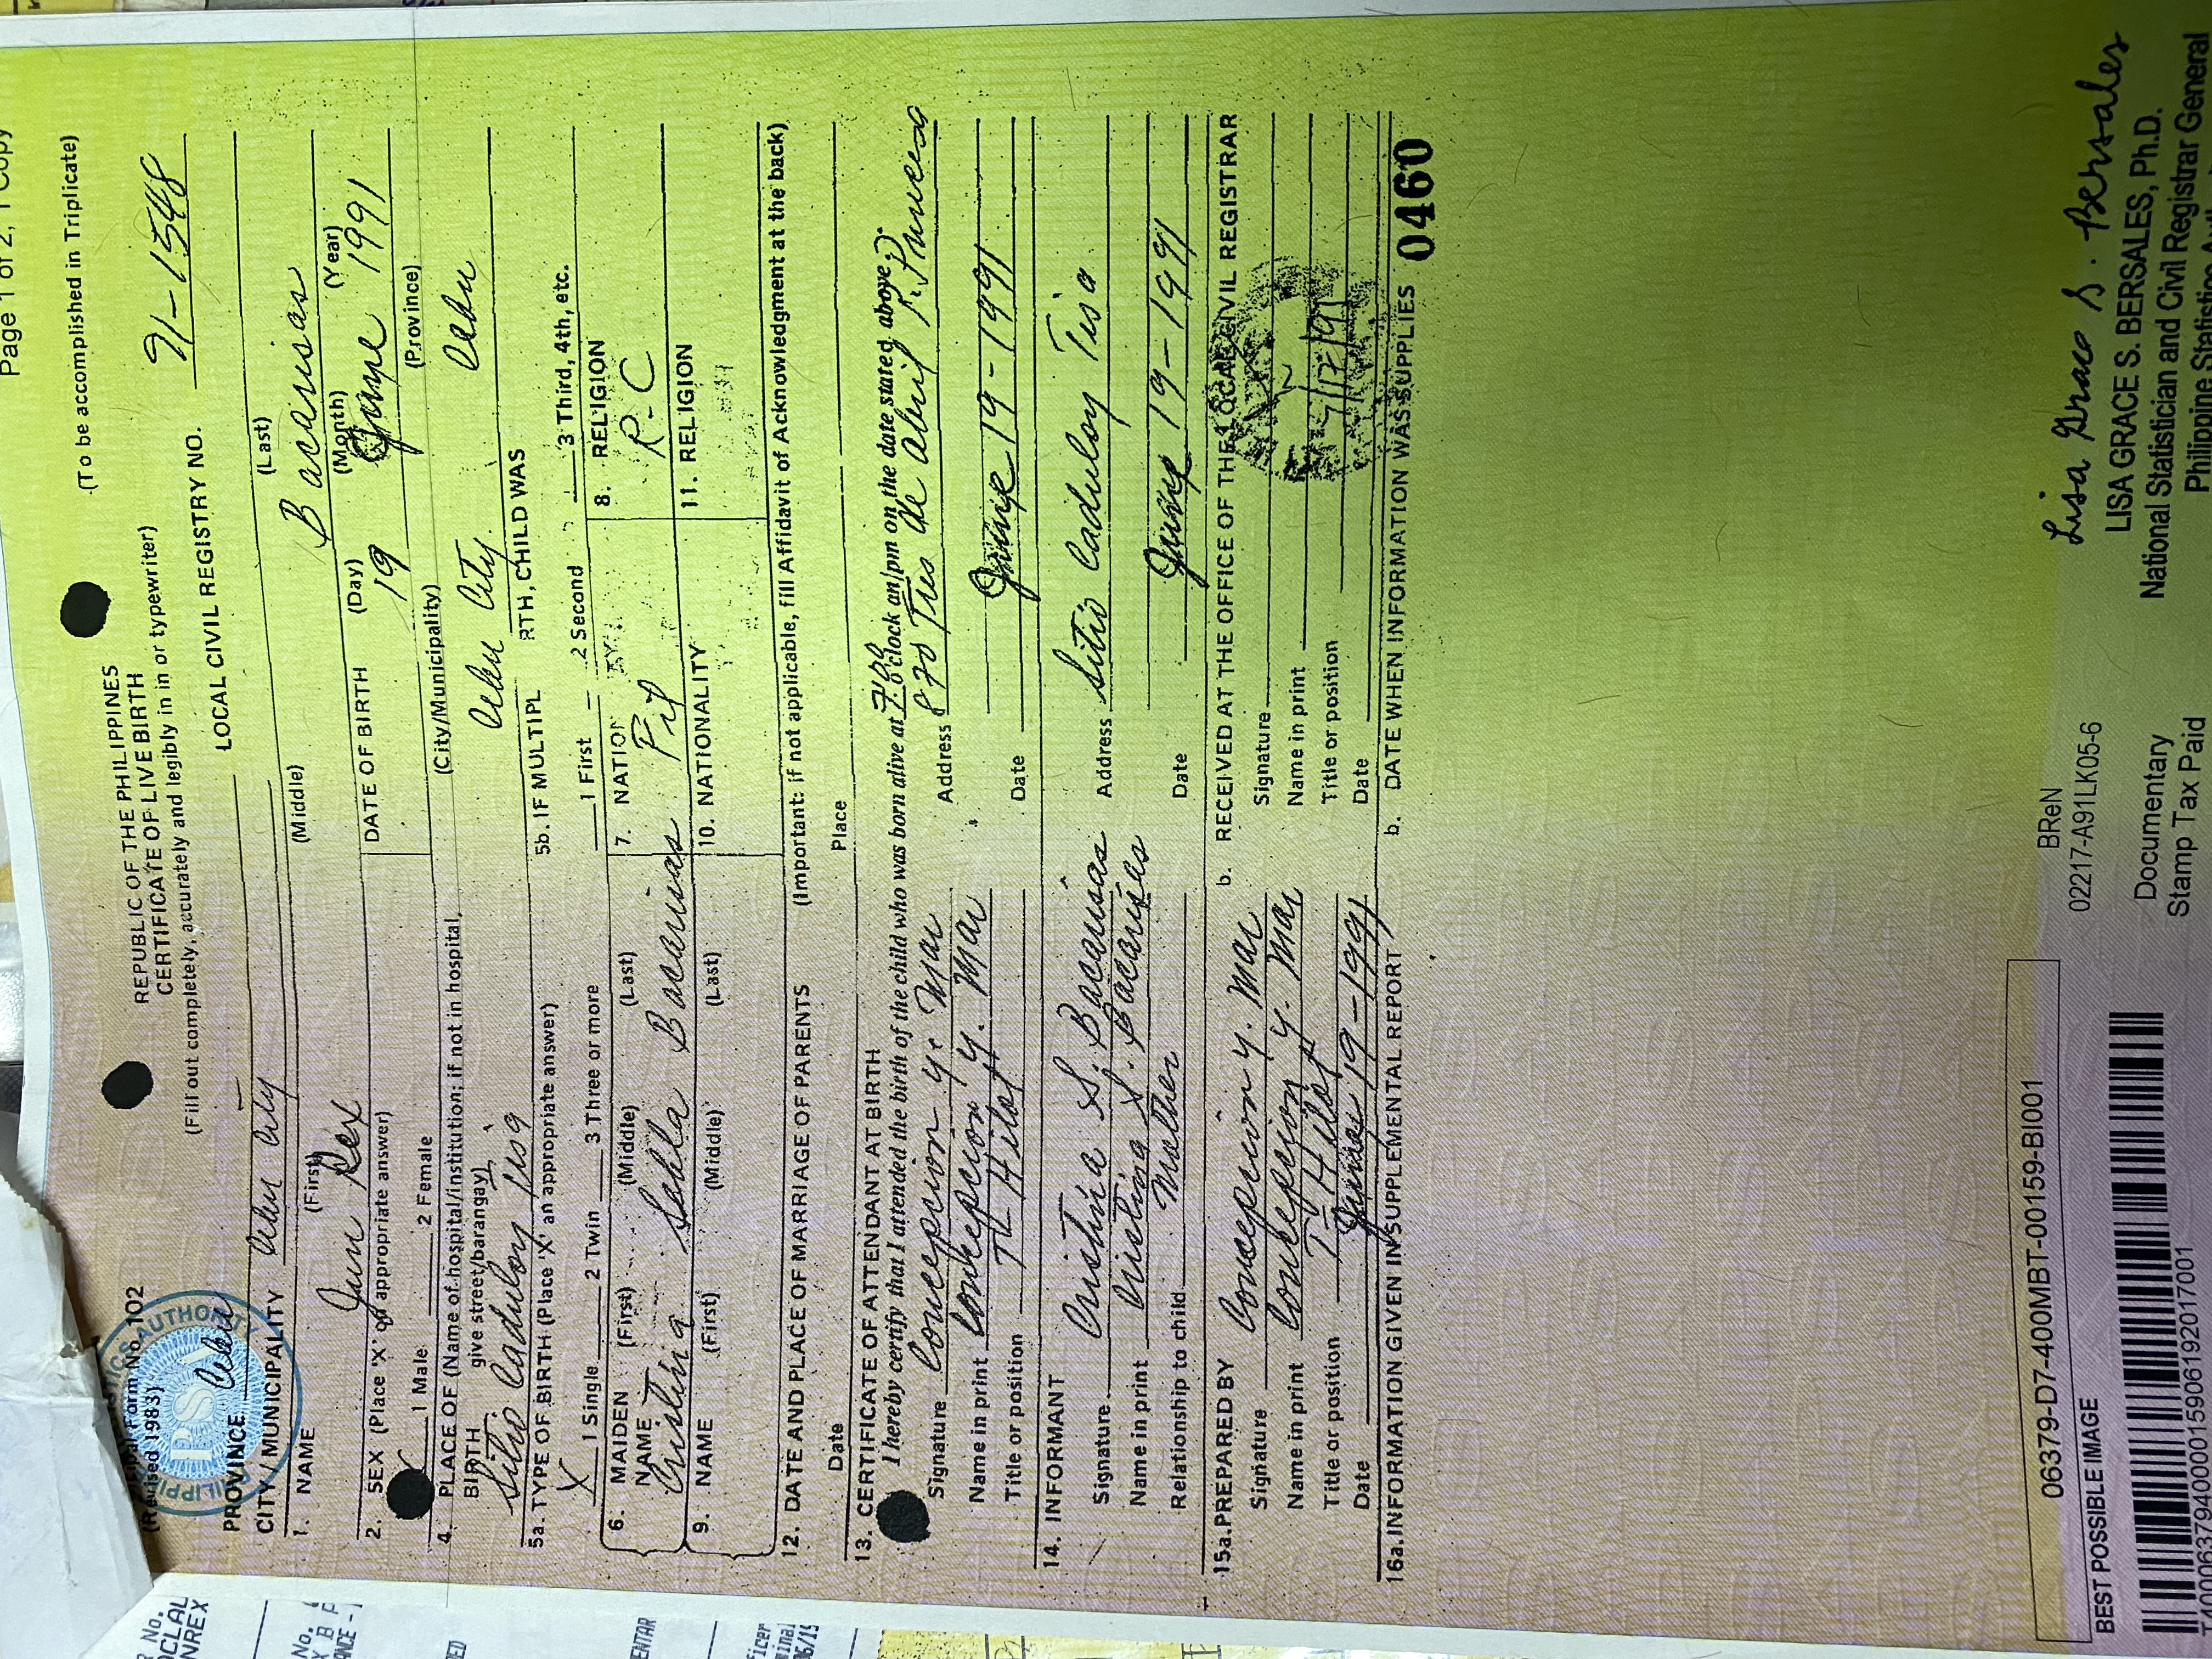 Page 1 of 2, 1 Copy
Municipal Form No. 102
(Revised 1983)
(To be accomplished in Triplicate)
REPUBLIC OF THE PHILIPPINES
CERTIFICATE OF LIVE BIRTH
(Fill out completely, accurately and legibly in in or typewriter)
PROVINCE Cebu
LOCAL CIVIL REGISTRY NO. 91-1548
CITY/MUNICIPALITY Cebu City
1. NAME (First) (Middle) (Last)
Jun Rex Bacarisas
2. SEX (Place 'X' of appropriate answer)
X 1 Male 2 Female
DATE OF BIRTH (Day) (Month) (Year)
19 June 1991
4. PLACE OF (Name of hospital/institution; if not in hospital,
BIRTH give street/barangay)
(City/Municipality) (Province)
Sitio Caduloy Tisa Cebu City Cebu
5a. TYPE OF BIRTH (Place 'X' an appropriate answer)
X 1 Single 2 Twin 3 Three or more
5b. IF MULTIPL RTH, CHILD WAS
1 First 2 Second 3 Third, 4th, etc.
6. MAIDEN NAME (First) (Middle) (Last)
Cristina Bacarisas
7. NATION
Fil
8. RELIGION
R-C
9. NAME (First) (Middle) (Last)
10. NATIONALITY
11. RELIGION
12. DATE AND PLACE OF MARRIAGE OF PARENTS (Important: if not applicable, fill Affidavit of Acknowledgment at the back)
Date Place
13. CERTIFICATE OF ATTENDANT AT BIRTH
I hereby certify that I attended the birth of the child who was born alive at o'clock am/pm on the date stated above.
Signature Concepcion Y. Mar
Address 870 Tres de Abril
Name in print Concepcion Y. Mar
Title or position T Hilot
Date June 19-1991
14. INFORMANT
Signature Cristina S. Bacarisas
Address Sitio Caduloy Tisa
Name in print Cristina S. Bacarisas
Relationship to child Mother
Date June 19-1991
15a. PREPARED BY
Signature Concepcion Y. Mar
Name in print Concepcion Y. Mar
Title or position T Hilot
Date June 19-1991
b. RECEIVED AT THE OFFICE OF THE LOCAL CIVIL REGISTRAR
Signature
Name in print
Title or position
Date
16a. INFORMATION GIVEN IN SUPPLEMENTAL REPORT
b. DATE WHEN INFORMATION WAS SUPPLIES
0460
06379-D7-400MBT-00159-BI001
BEST POSSIBLE IMAGE
BReN
02217-A91LK05-6
Documentary
Stamp Tax Paid
Lisa Grace S. Bersales
LISA GRACE S. BERSALES, Ph.D.
National Statistician and Civil Registrar General